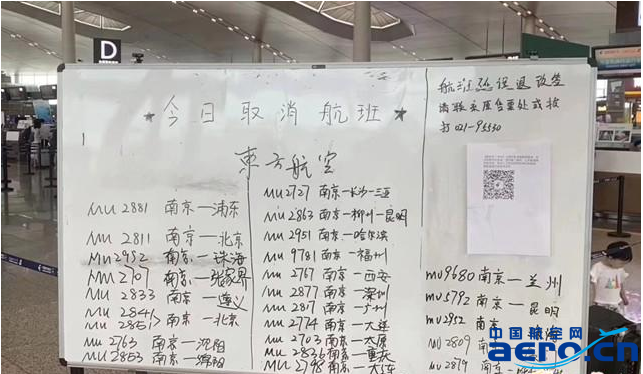 D
今日取消航班
東方航空
MU 2881 南京—浦东
MU 2811 南京—北京
MU 2992 南京—珠海
MU 2707 南京—张家界
MU 2833 南京—遵义
MU 2841
MU 2851 南京—北京
MU 2763 南京—沈阳
MU 2853 南京—绵阳
MU 2727 南京—长沙—三亚
MU 2863 南京—柳州—昆明
MU 2951 南京—哈尔滨
MU 9781 南京—福州
MU 2767 南京—西安
MU 2877 南京—深圳
MU 2817 南京—广州
MU 2774 南京—大连
MU 2703 南京—太原
MU 2826 南京—重庆
MU 2798 南京—大连
航班延误退改签
请联系原售票处或拨
打 021-95530
MU9680 南京—兰州
MU5792 南京—昆明
MU2952 南京
MU2809 南京
MU2879
中国航空网
aero.cn